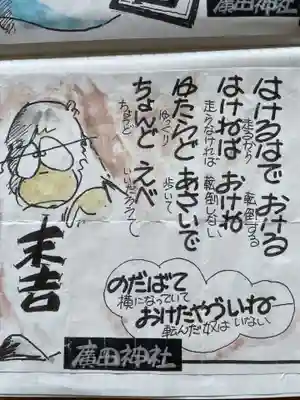 廣田神社
はけるはで おける
走るから 転倒する
はけねば おけね
走らなければ 転倒しない
ゆたらど あさいで
ゆっくり 歩いて
ちょんど えべ
ちょうど
末吉
のだばて
横になっていて
おけたやづいね
転んだ奴は いない
廣田神社